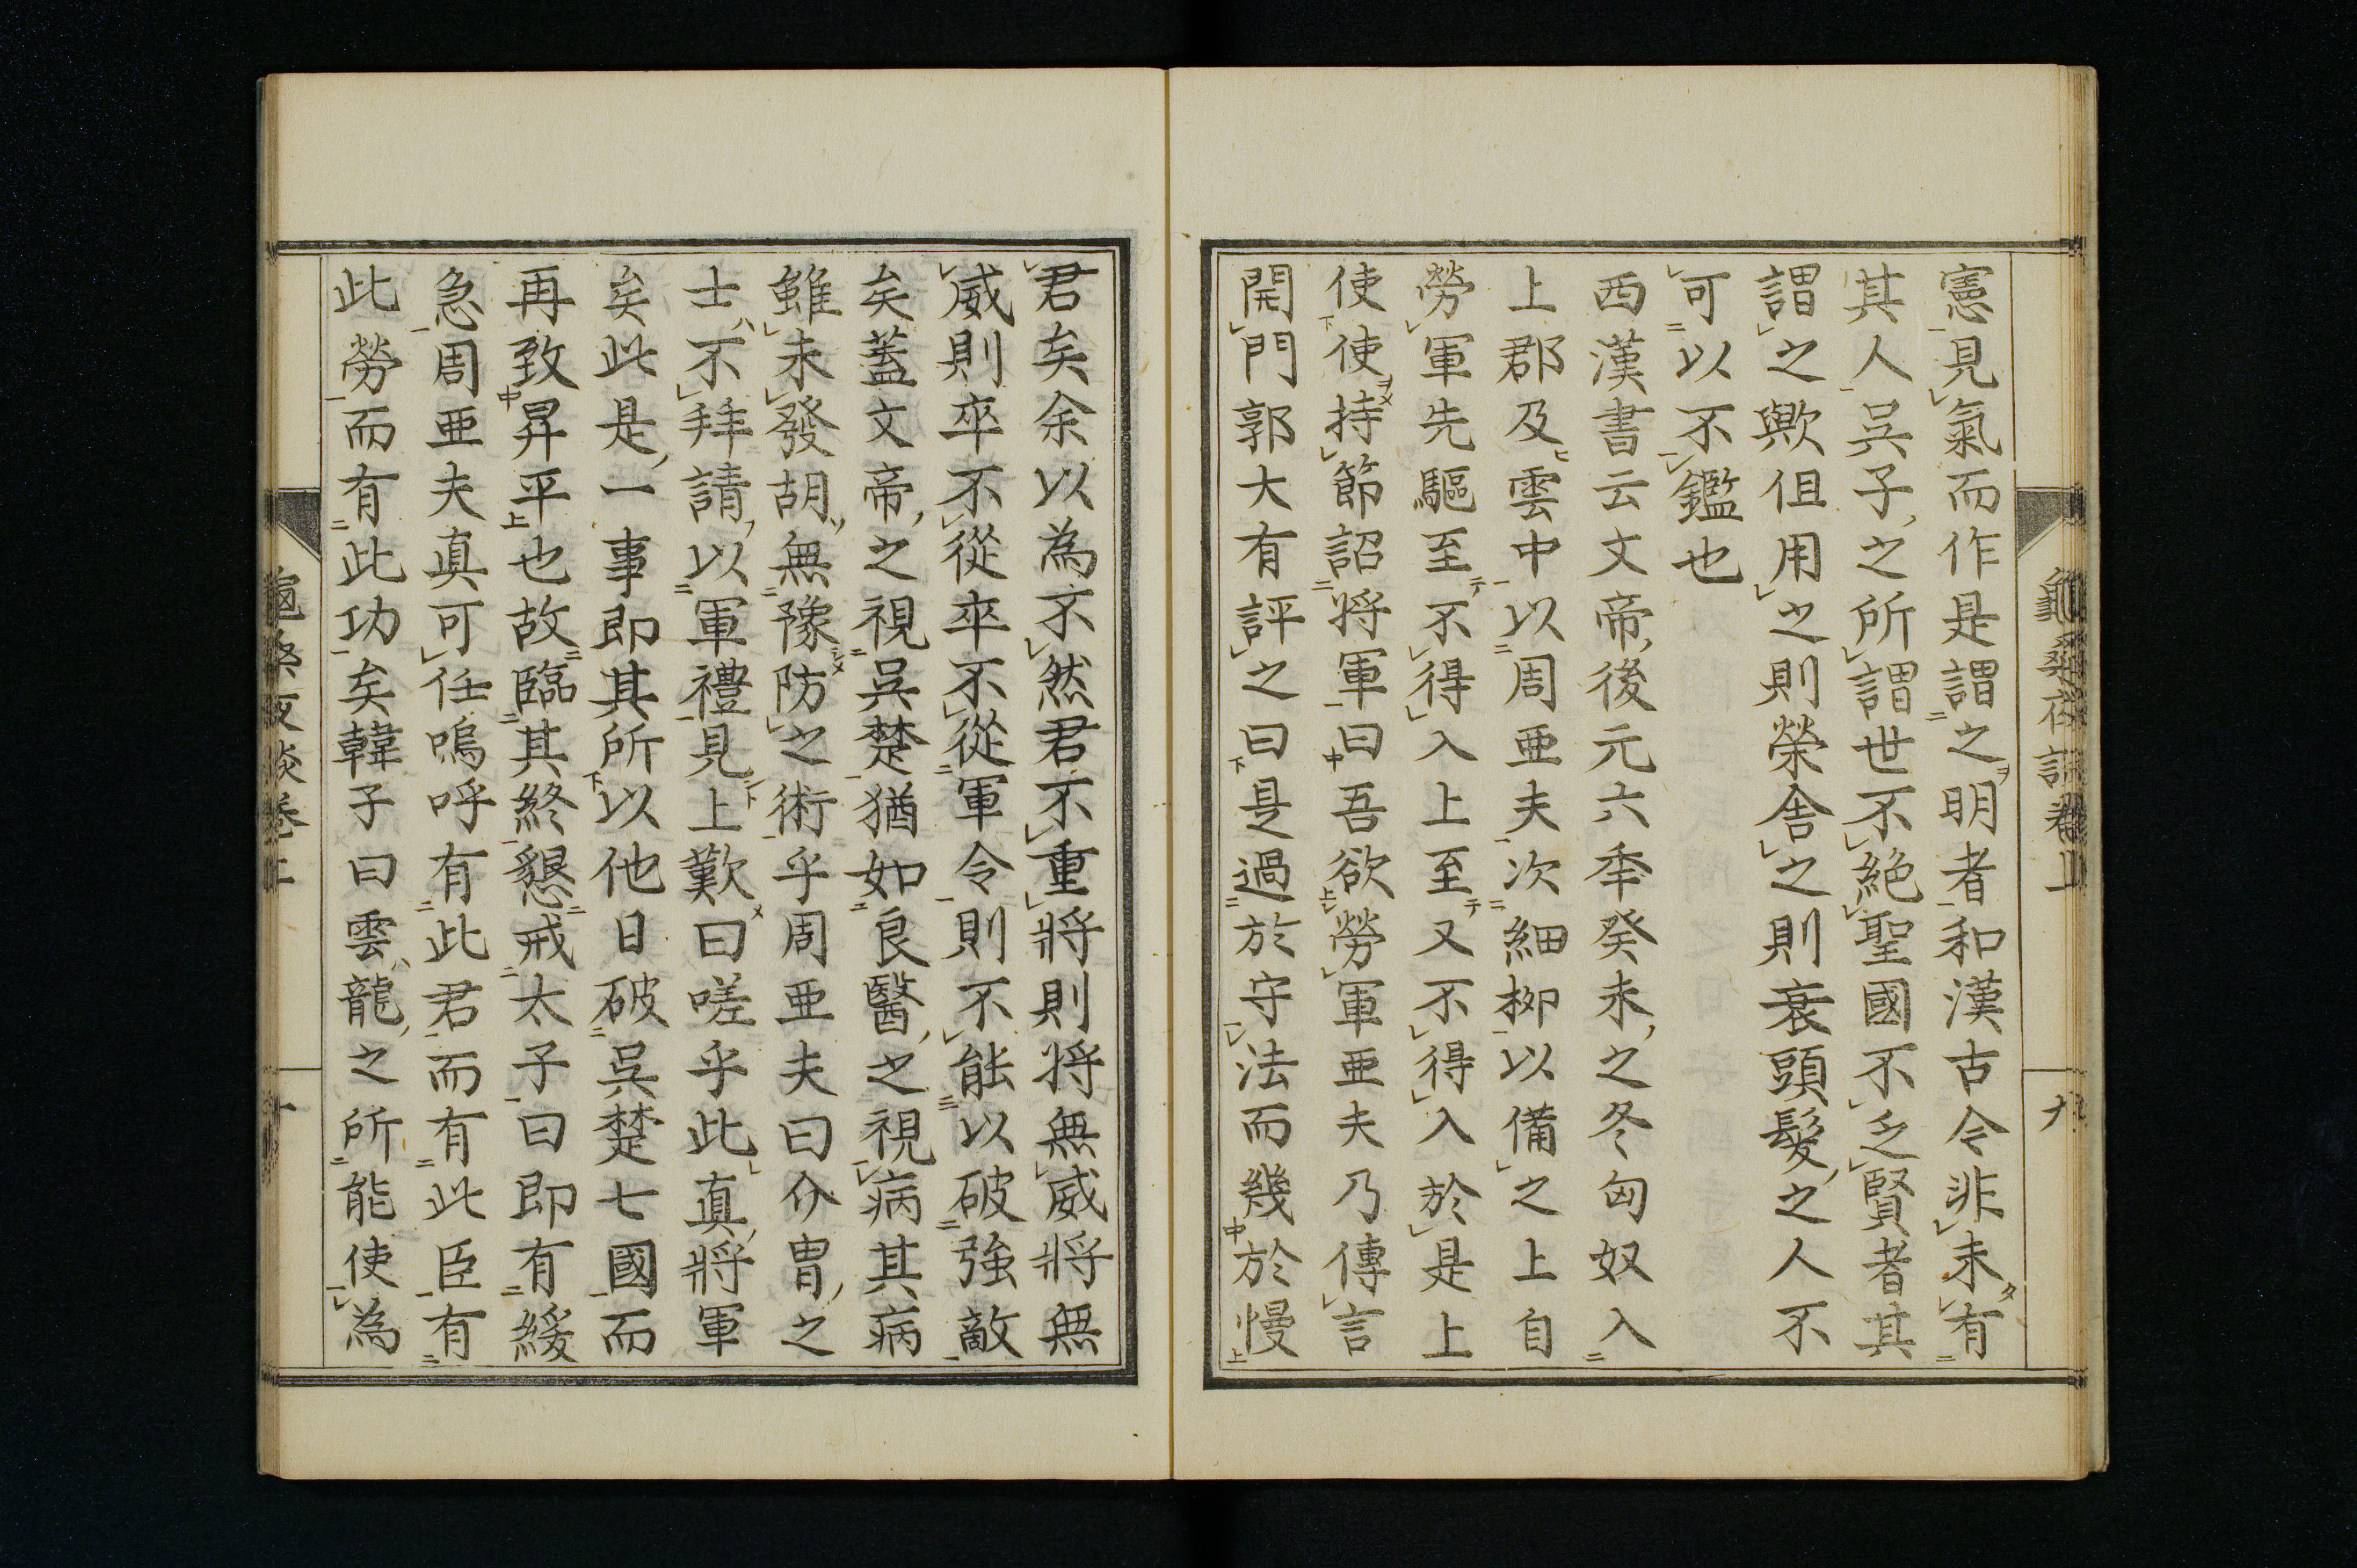 憲見氣而作是謂之明者和漢古今非未有
其人吳子之所謂世不絶聖國不乏賢者其
謂之歟伹用之則榮舍之則衰頭髮之人不
可以不鑑也
西漢書云文帝後元六秊癸未之冬匈奴入
上郡及雲中以周亜夫次細栁以備之上自
勞軍先驅至不得入上至又不得入於是上
使使持節詔将軍曰吾欲勞軍亜夫乃傳言
開門郭大有評之曰是過於守法而幾於慢
君矣余以為不然君不重將則将無威將無
威則卒不從卒不從軍令則不能以破強敵
矣蓋文帝之視吳楚猶如良醫之視病其病
雖未發胡無豫防之術乎周亜夫曰介冑之
士不拜請以軍禮見上歎曰嗟乎此真將軍
矣此是一事即其所以他日破吳楚七國而
再致昇平也故臨其終懇戒太子曰即有緩
急周亜夫真可任嗚呼有此君而有此臣有
此勞而有此功矣韓子曰雲龍之所能使為